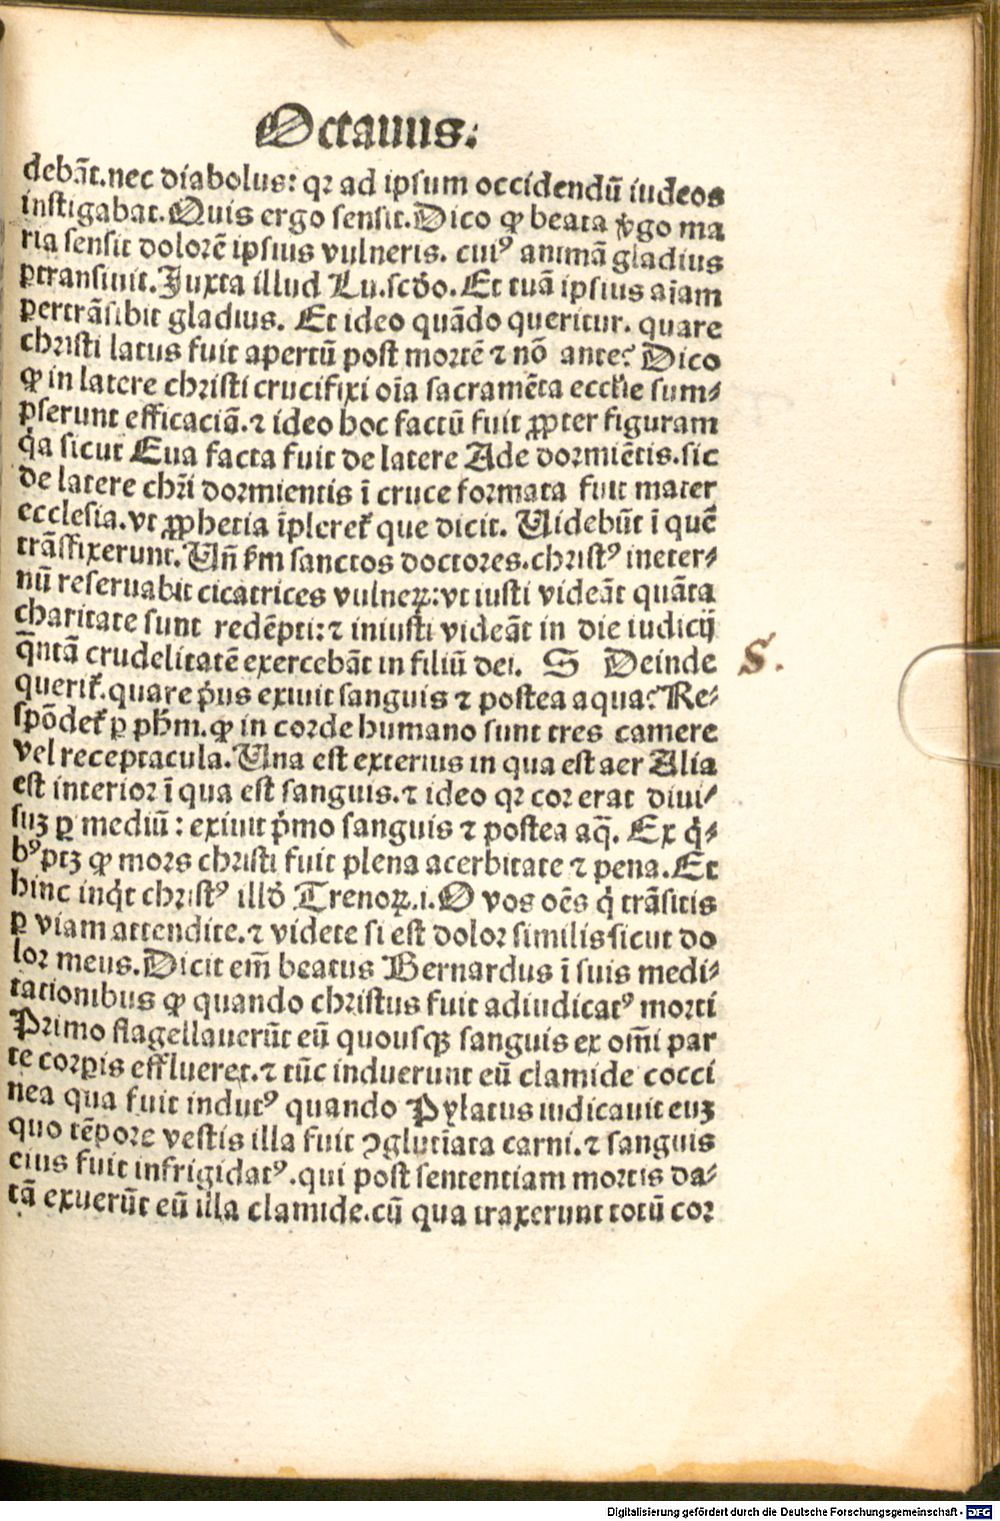 Octauus.
debāt.nec diabolus: qꝛ ad ipsum occidendū iudeos
instigabat.Quis ergo sensit.Dico ꝙ beata v̓go ma
ria sensit dolorē ipsius vulneris. cuiꝰ animā gladius
ꝑtransiuit.Juxta illud Lu.scd̓o.Et tuā ipsius aīam
pertrāsibit gladius. Et ideo quādo queritur. quare
christi latus fuit apertū post mortē ⁊ nō ante? Dico
ꝙ in latere christi crucifixi oīa sacramēta eccl̓ie sum⸗
pserunt efficaciā.⁊ ideo hoc factū fuit ꝓpter figuram
q̓a sicut Eua facta fuit de latere Ade dormiētis.sic
de latere chr̄i dormientis ī cruce formata fuit mater
ecclesia.vt ꝓphetia īpleret᷑ que dicit. Uidebūt ī quē
trāsfixerunt.Uñ ẜm sanctos doctores.christꝰ ineter⸗
nū reseruabit cicatrices vulneꝝ:vt iusti videāt quāta
charitate sunt redēpti:⁊ iniusti videāt in die iudicij
q̄ntā crudelitatē exercebāt in filiū dei. S Deinde
querit᷑.quare p̓us exiuit sanguis ⁊ postea aqua? Re⸗
spōdet᷑ ꝑ ph̓m.ꝙ in corde humano sunt tres camere
vel receptacula.Una est exterius in qua est aer Alia
est interior ī qua est sanguis.⁊ ideo qꝛ cor erat diui⸗
suꝫ ꝑ mediū: exiuit p̓mo sanguis ⁊ postea aq̄. Ex q̓⸗
bꝰ ptꝫ ꝙ mors christi fuit plena acerbitate ⁊ pena.Et
hinc inq̓t christꝰ illd̓ Trenoꝝ.i.O vos oēs q̓ trāsitis
ꝑ viam attendite.⁊ videte si est dolor similis sicut do
lor meus.Dicit em̄ beatus Bernardus ī suis medi⸗
tationibus ꝙ quando christus fuit adiudicatꝰ morti
Primo flagellauerūt eū quousqꝫ sanguis ex om̄i par
te corꝑis efflueret.⁊ tūc induerunt eū clamide cocci
nea qua fuit indutꝰ quando Pylatus iudicauit euꝫ
quo tēpore vestis illa fuit ꝯglutīata carni.⁊ sanguis
eius fuit infrigidatꝰ.qui post sententiam mortis da⸗
tā exuerūt eū illa clamide.cū qua traxerunt totū cor
S.
Digitalisierung gefördert durch die Deutsche Forschungsgemeinschaft - DFG